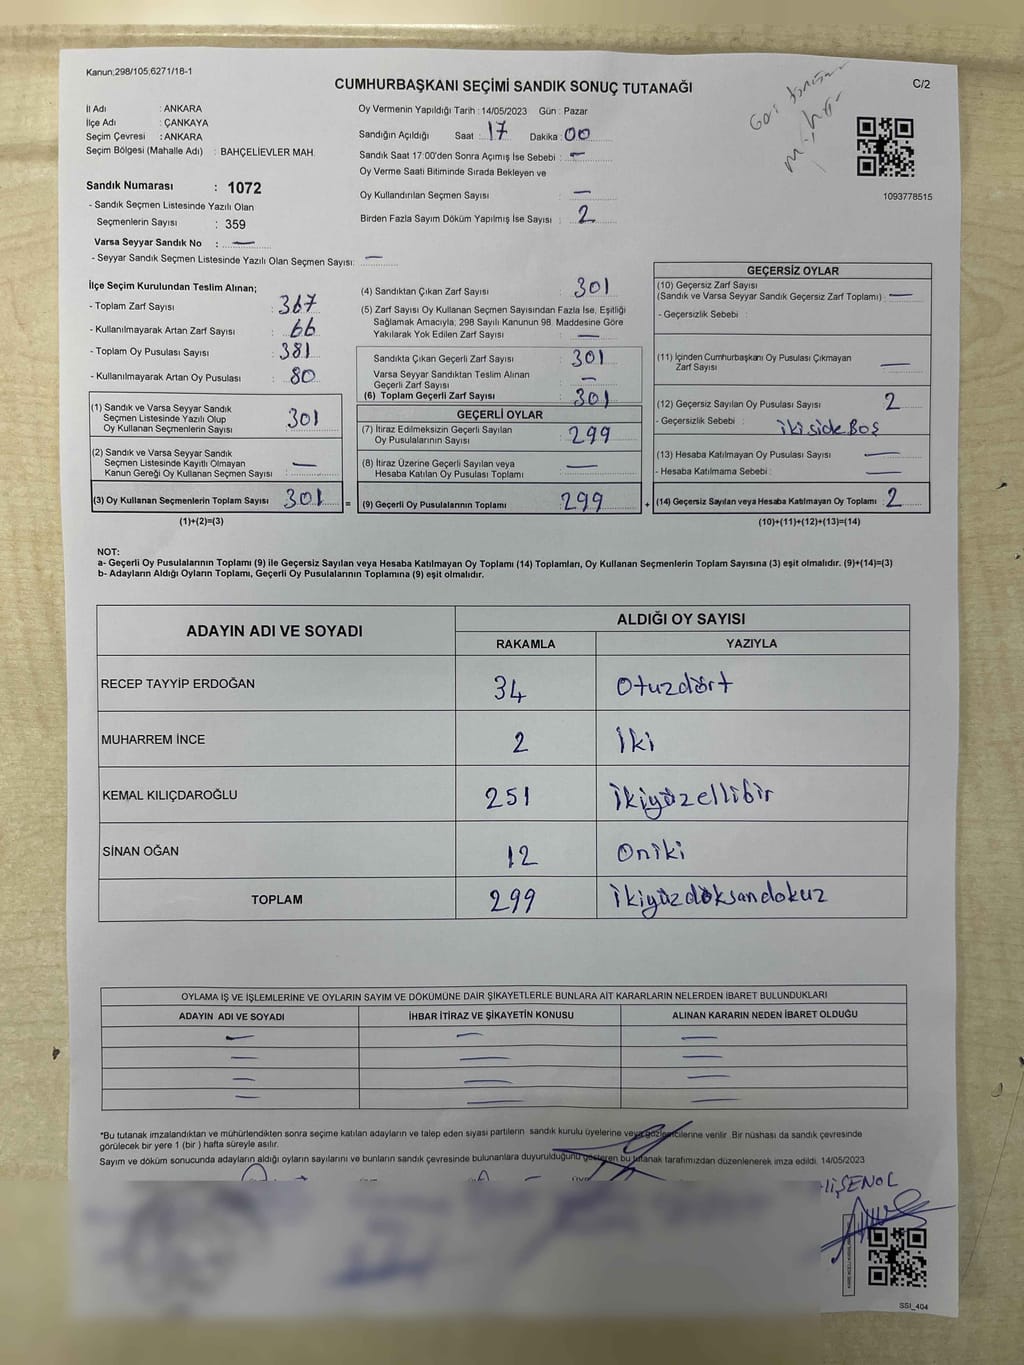 Kanun;298/105,6271/18-1
CUMHURBAŞKANI SEÇİMİ SANDIK SONUÇ TUTANAĞI
C/2
İl Adı : ANKARA
İlçe Adı : ÇANKAYA
Seçim Çevresi : ANKARA
Seçim Bölgesi (Mahalle Adı) : BAHÇELİEVLER MAH.
Sandık Numarası : 1072
- Sandık Seçmen Listesinde Yazılı Olan
Seçmenlerin Sayısı : 359
Varsa Seyyar Sandık No : —
- Seyyar Sandık Seçmen Listesinde Yazılı Olan Seçmen Sayısı: —
Oy Vermenin Yapıldığı Tarih : 14/05/2023 Gün : Pazar
Sandığın Açıldığı Saat : 17 Dakika : 00
Sandık Saat 17:00'den Sonra Açımış İse Sebebi : —
Oy Verme Saati Bitiminde Sırada Bekleyen ve
Oy Kullandırılan Seçmen Sayısı —
Birden Fazla Sayım Döküm Yapılmış İse Sayısı : 2
1093778515
İlçe Seçim Kurulundan Teslim Alınan;
- Toplam Zarf Sayısı : 367
- Kullanılmayarak Artan Zarf Sayısı : 66
- Toplam Oy Pusulası Sayısı : 381
- Kullanılmayarak Artan Oy Pusulası : 80
(1) Sandık ve Varsa Seyyar Sandık
Seçmen Listesinde Yazılı Olup
Oy Kullanan Seçmenlerin Sayısı 301
(2) Sandık ve Varsa Seyyar Sandık
Seçmen Listesinde Kayıtlı Olmayan
Kanun Gereği Oy Kullanan Seçmen Sayısı : —
(3) Oy Kullanan Seçmenlerin Toplam Sayısı 301 =
(1)+(2)=(3)
(4) Sandıktan Çıkan Zarf Sayısı : 301
(5) Zarf Sayısı Oy Kullanan Seçmen Sayısından Fazla İse, Eşitliği
Sağlamak Amacıyla; 298 Sayılı Kanunun 98. Maddesine Göre
Yakılarak Yok Edilen Zarf Sayısı : —
Sandıkta Çıkan Geçerli Zarf Sayısı : 301
Varsa Seyyar Sandıktan Teslim Alınan
Geçerli Zarf Sayısı : —
(6) Toplam Geçerli Zarf Sayısı : 301
GEÇERLİ OYLAR
(7) İtiraz Edilmeksizin Geçerli Sayılan
Oy Pusulalarının Sayısı : 299
(8) İtiraz Üzerine Geçerli Sayılan veya
Hesaba Katılan Oy Pusulası Toplamı : —
(9) Geçerli Oy Pusulalarının Toplamı 299 +
GEÇERSİZ OYLAR
(10) Geçersiz Zarf Sayısı
(Sandık ve Varsa Seyyar Sandık Geçersiz Zarf Toplamı) : —
- Geçersizlik Sebebi :
(11) İçinden Cumhurbaşkanı Oy Pusulası Çıkmayan
Zarf Sayısı : —
(12) Geçersiz Sayılan Oy Pusulası Sayısı : 2
- Geçersizlik Sebebi : ikiside Boş
(13) Hesaba Katılmayan Oy Pusulası Sayısı : —
- Hesaba Katılmama Sebebi : —
(14) Geçersiz Sayılan veya Hesaba Katılmayan Oy Toplamı : 2
(10)+(11)+(12)+(13)=(14)
NOT:
a- Geçerli Oy Pusulalarının Toplamı (9) ile Geçersiz Sayılan veya Hesaba Katılmayan Oy Toplamı (14) Toplamları, Oy Kullanan Seçmenlerin Toplam Sayısına (3) eşit olmalıdır. (9)+(14)=(3)
b- Adayların Aldığı Oyların Toplamı, Geçerli Oy Pusulalarının Toplamına (9) eşit olmalıdır.
ADAYIN ADI VE SOYADI
ALDIĞI OY SAYISI
RAKAMLA YAZIYLA
RECEP TAYYİP ERDOĞAN 34 Otuzdört
MUHARREM İNCE 2 İki
KEMAL KILIÇDAROĞLU 251 İkiyüzellibir
SİNAN OĞAN 12 Oniki
TOPLAM 299 İkiyüzdoksandokuz
OYLAMA İŞ VE İŞLEMLERİNE VE OYLARIN SAYIM VE DÖKÜMÜNE DAİR ŞİKAYETLERLE BUNLARA AİT KARARLARIN NELERDEN İBARET BULUNDUKLARI
ADAYIN ADI VE SOYADI İHBAR İTİRAZ VE ŞİKAYETİN KONUSU ALINAN KARARIN NEDEN İBARET OLDUĞU
— — —
— — —
— — —
— — —
*Bu tutanak imzalandıktan ve mühürlendikten sonra seçime katılan adayların ve talep eden siyasi partilerin sandık kurulu üyelerine veya gözlemcilerine verilir. Bir nüshası da sandık çevresinde
görülecek bir yere 1 (bir ) hafta süreyle asılır.
Sayım ve döküm sonucunda adayların aldığı oyların sayılarını ve bunların sandık çevresinde bulunanlara duyurulduğunu gösteren bu tutanak tarafımızdan düzenlenerek imza edildi. 14/05/2023
SSI_404